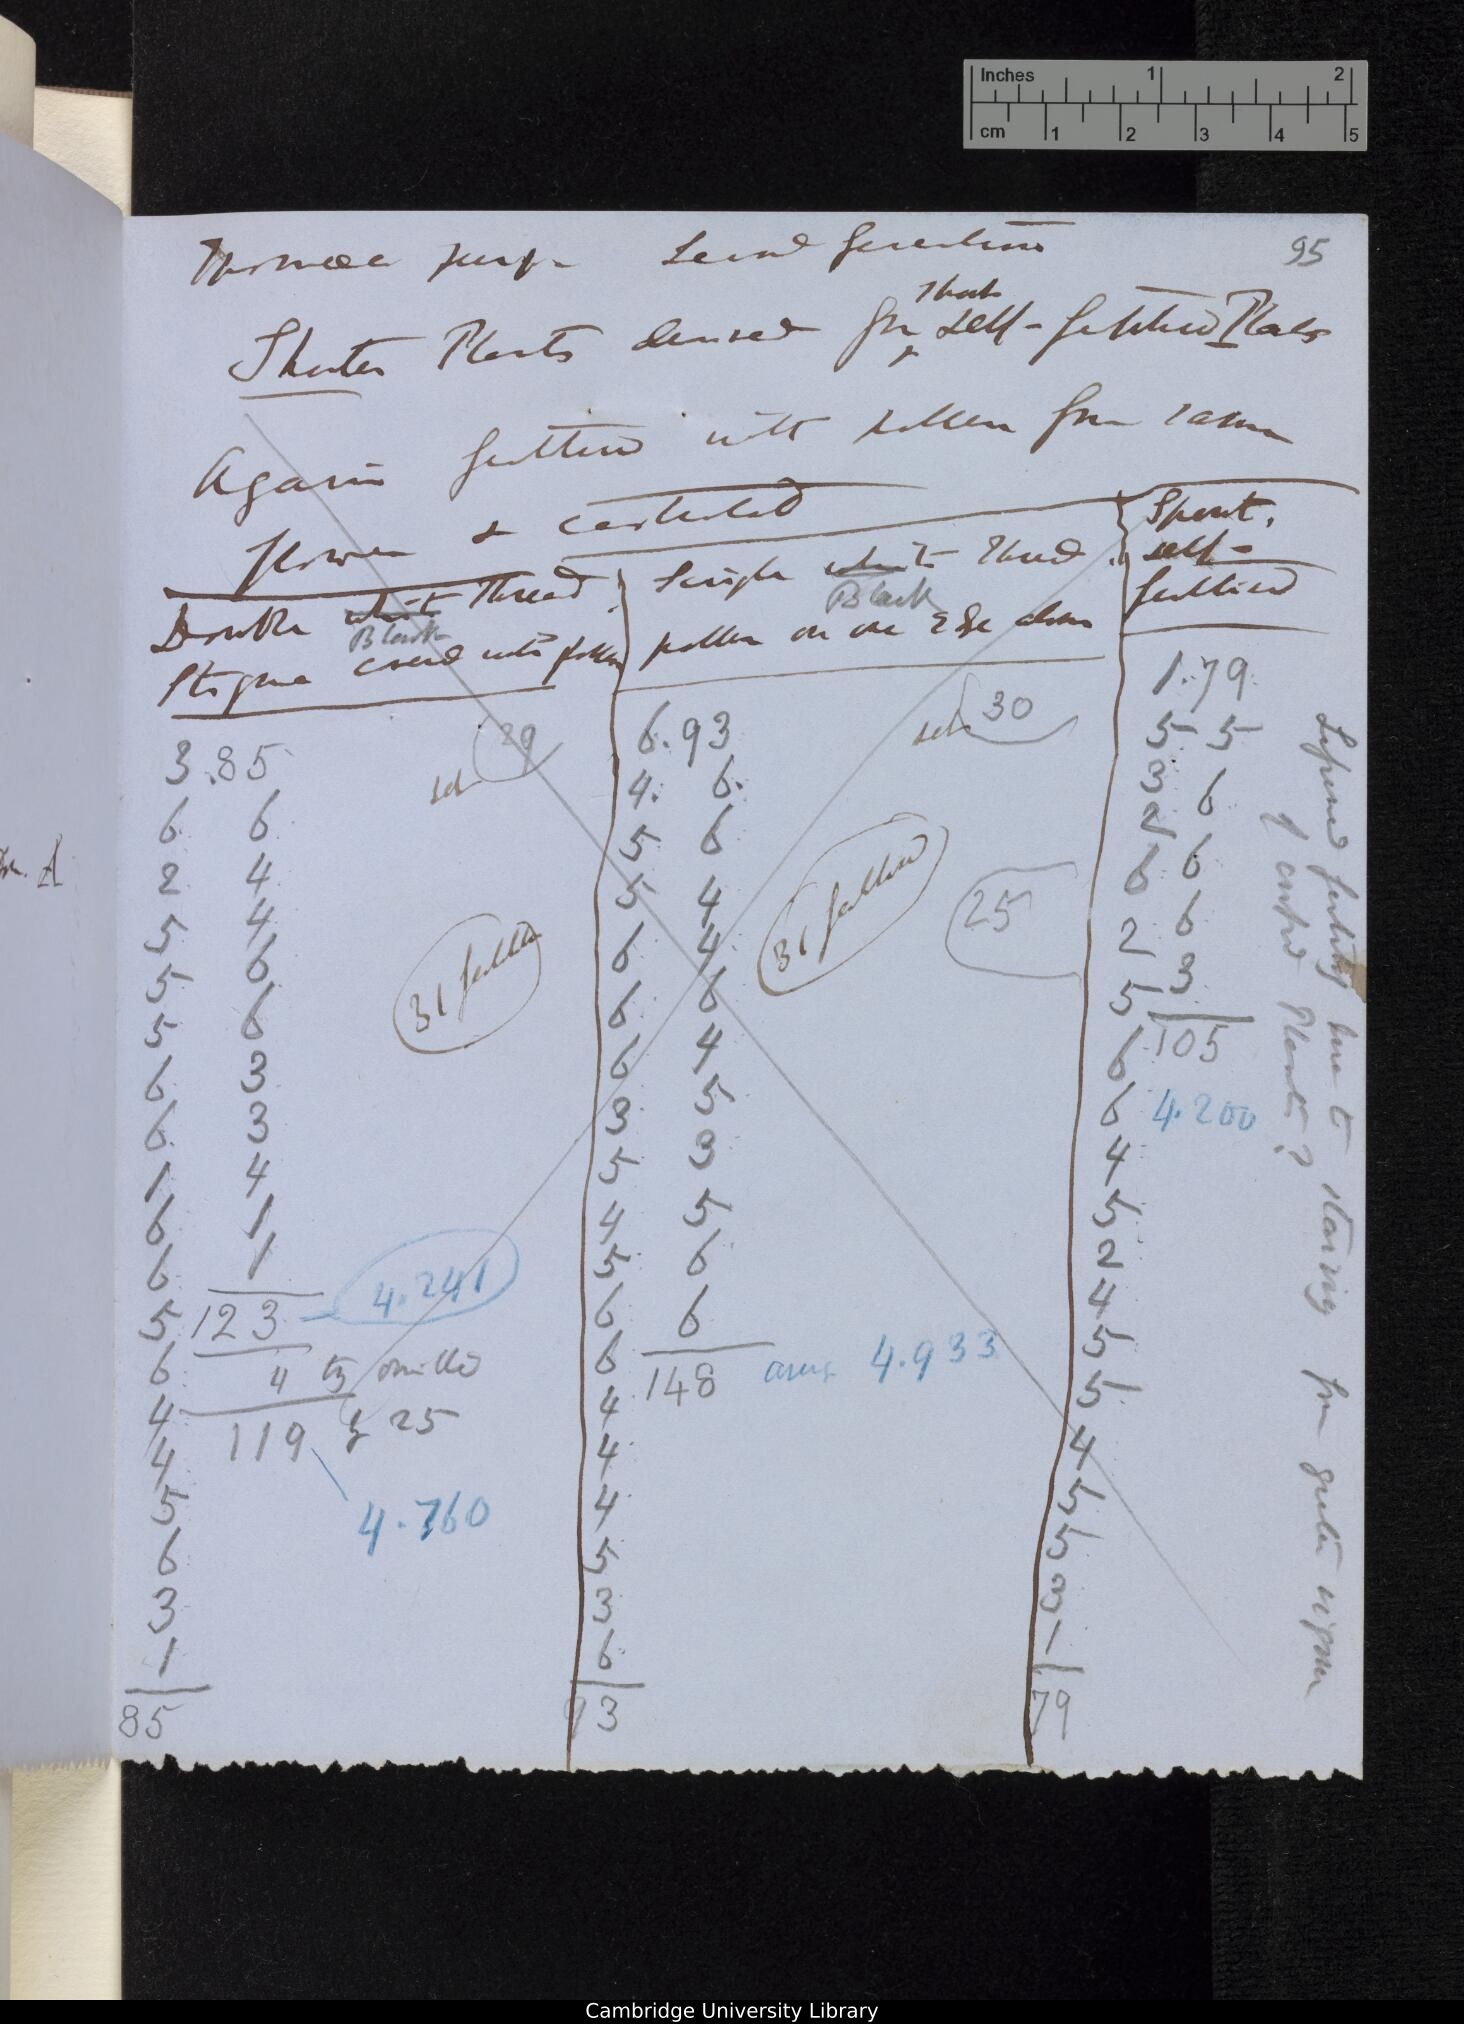 95
Ipomœa purp. Second generation
Shorter Plants derived from short self-fertilised Plants
Again fertilised with pollen from same
flower & castrated
Double white Thread
Black
Stigma covered with pollen
3.85
6 6
2 4
5 4
5 6
5 6
6 3
6 3
1 4
6 1
6 1
5 123 – 4.241
6 4
4 119 by 25
4
5 4.760
6
3
1
85
29
31 fertilised
Single white Thread
Black
pollen on one edge alone
6.93
4. 6.
5 6
5 4
6 4
6 6
6 4
3 5
5 3
4 5
5 6
6 6
6 148 4.933
4
4
4
5
3
6
93
30
31 fertilised
Spont.
self-
fertilised
1.79
5 5
3 6
2 6
6 6
2 3
5 105
6
6 4.200
4
5
2
4
5
5
4
5
5
3
1
79
25
fertility here to starving from greater vigour
of crossed Plants?
A